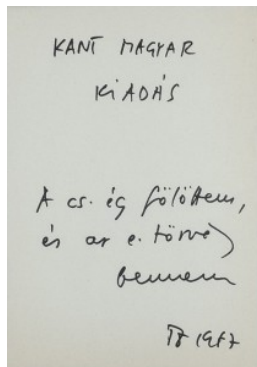 KANT MAGYAR
KIADÁS
A cs. ég fölöttem,
és az e. törvé
bennem
1987